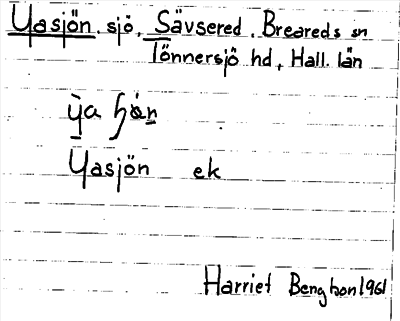 Yasjön, sjö, Sävsered, Breareds sn
Tönnersjö hd, Hall. län
Yasjön ek
Harriet 1961